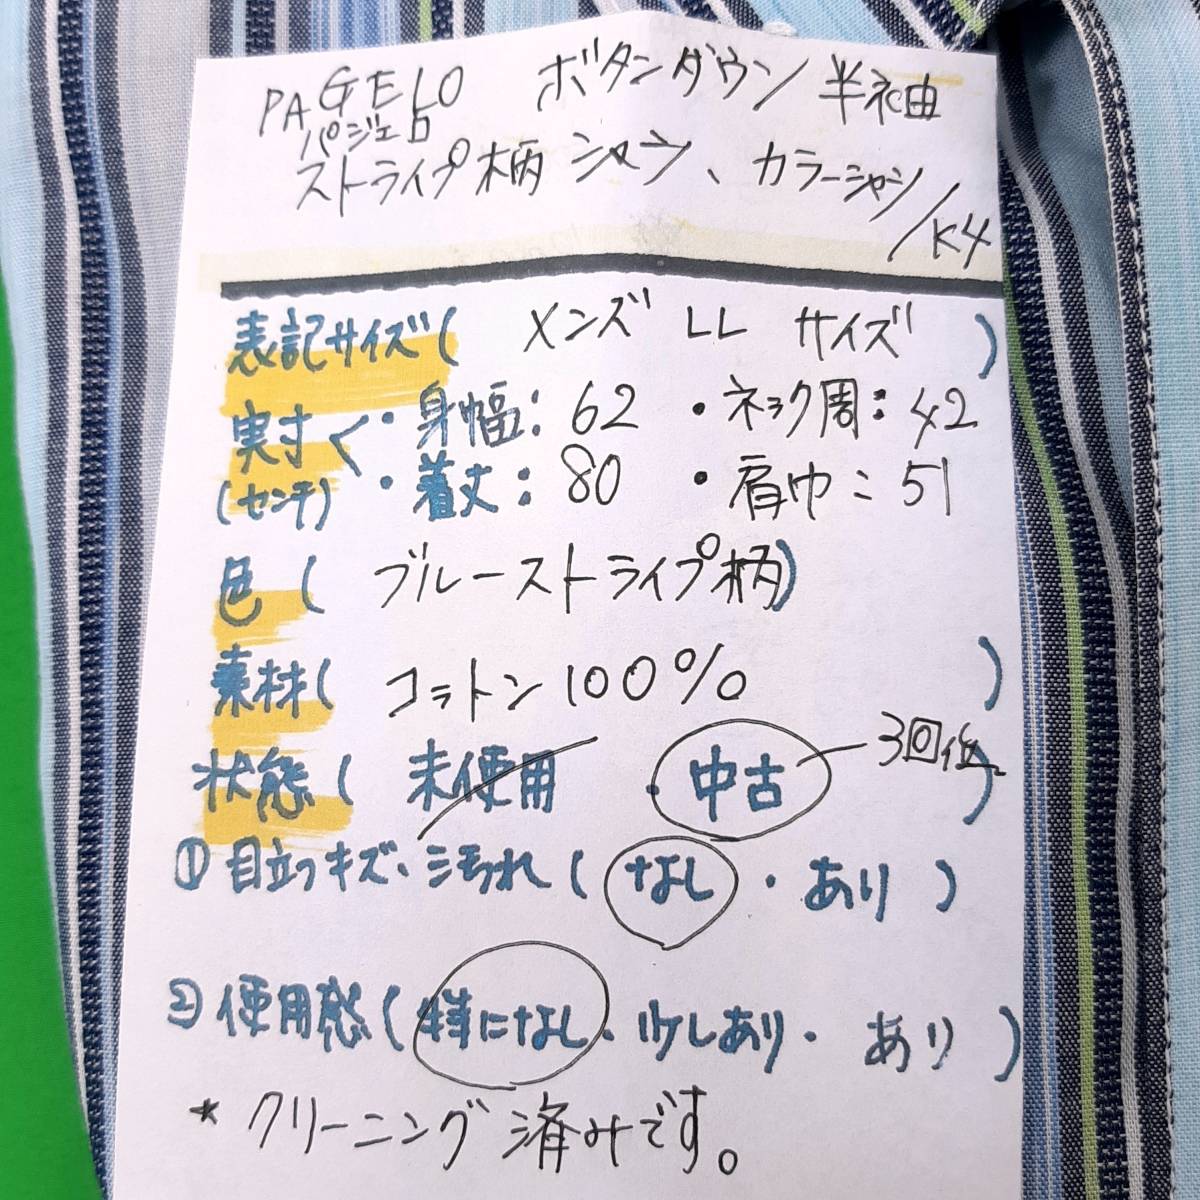 PAGELO ボタンダウン 半袖
パジェロ
ストライプ柄 シャツ、カラーシャツ/K4
表記サイズ( メンズ LL サイズ )
実寸く・身幅:62 ・ネック周:42
(センチ)・着丈:80 ・肩巾:51
色( ブルーストライプ柄)
素材( コットン100% )
状態( 未使用 ・ 中古 3回位 )
①目立つキズ、汚れ( なし ・ あり )
②使用感(特になし・少しあり・ あり )
* クリーニング済みです。